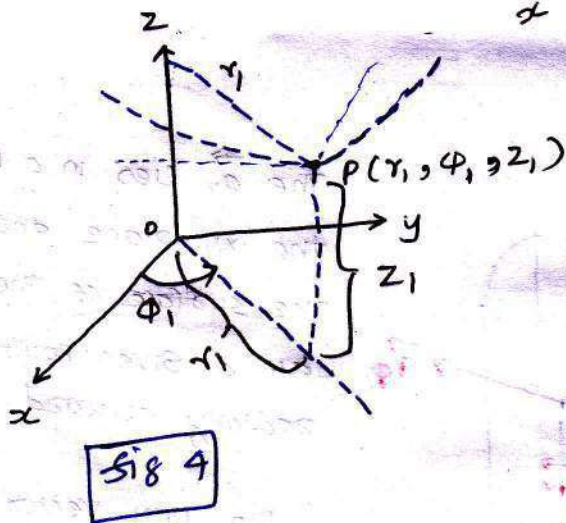 x
z
r₁
P(r₁, φ₁, z₁)
o
y
z₁
φ₁
r₁
x
fig 4